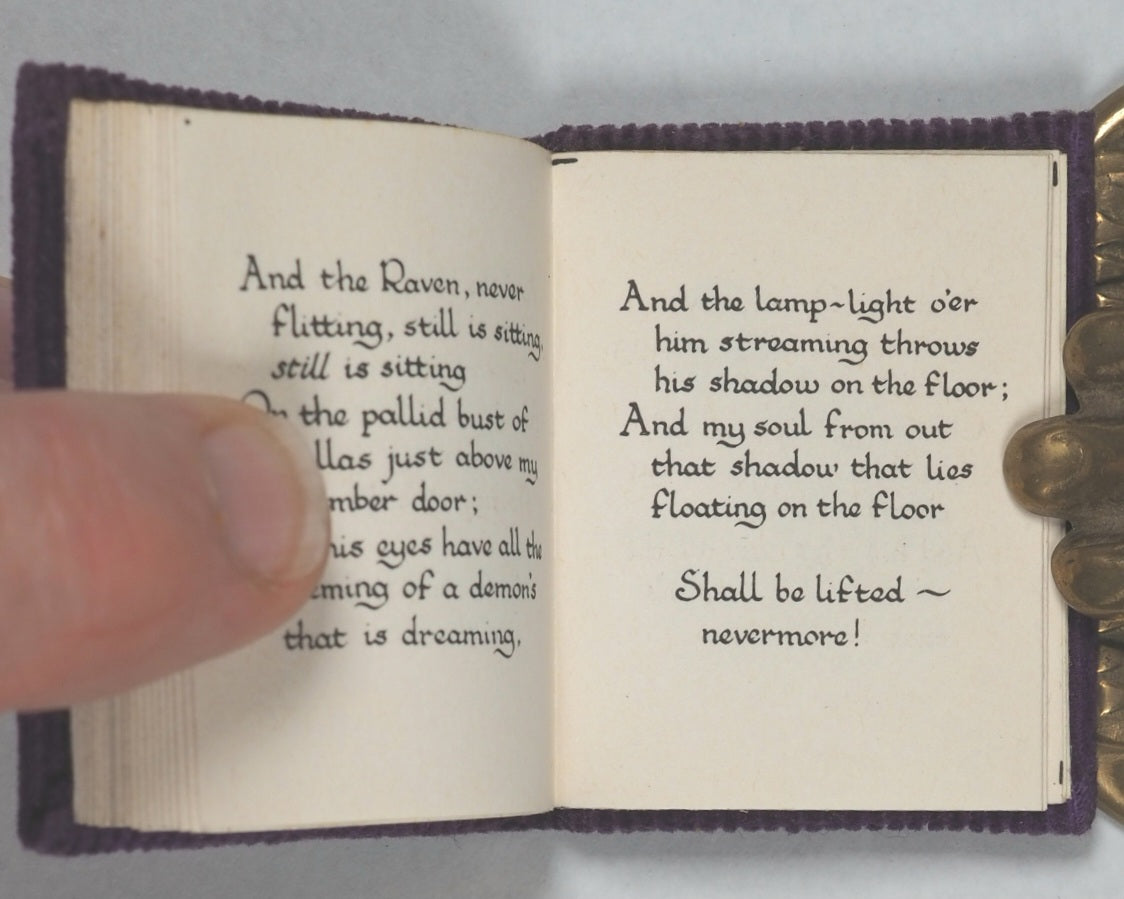 And the Raven, never
flitting, still is sitting,
still is sitting
On the pallid bust of
llas just above my
mber door;
his eyes have all the
eming of a demon's
that is dreaming,
And the lamp~light o'er
him streaming throws
his shadow on the floor;
And my soul from out
that shadow that lies
floating on the floor
Shall be lifted ~
nevermore!